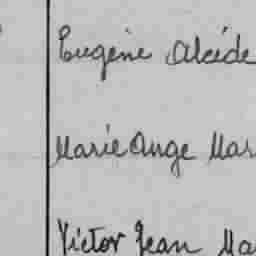 Eugène Alcide
Marie Ange Mar
Victor Jean Ma